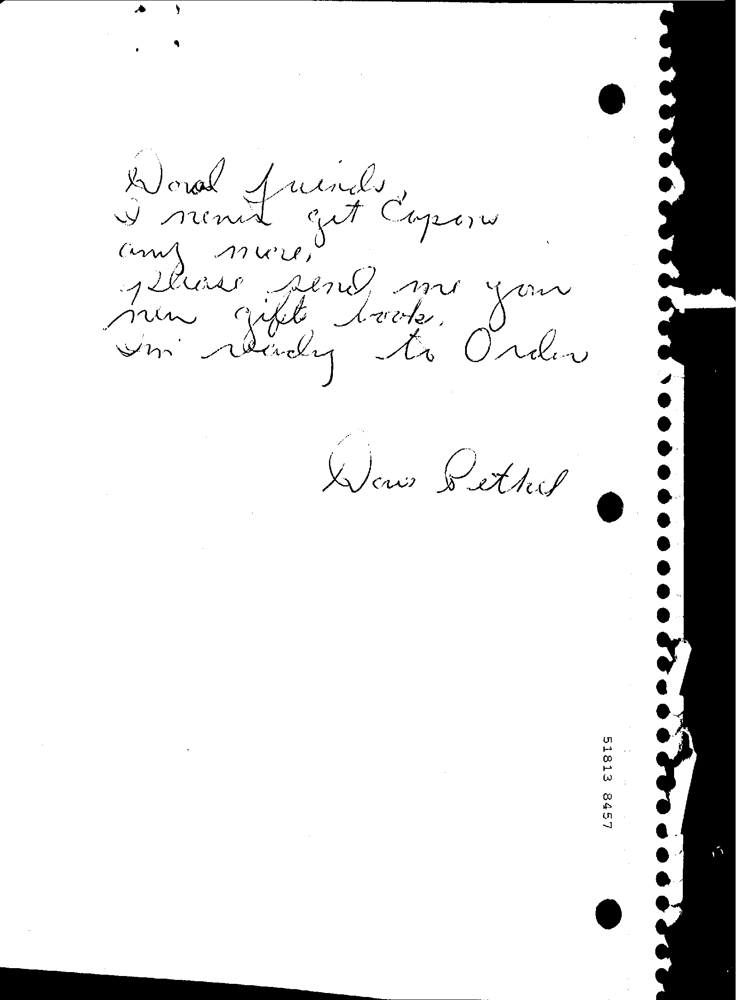 Doral friends,
I never get Cupons
any more,
please send me your
new gift book.
I'm ready to Order
Doris Bethel
51813 8457